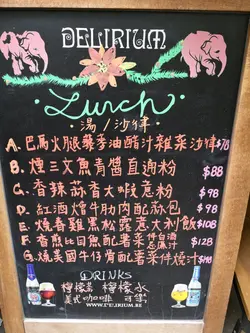 DELIRIUM
Lunch
湯/沙律
A. 巴馬火腿葵季油醋汁雜菜沙律 $78
B. 煙三文魚青醬直通粉 $88
C. 香辣蒜香大蝦意粉 $98
D. 紅酒燴牛肋肉配蒜包 $98
E. 燒春雞黑松露意大利飯 $108
F. 香煎比目魚配薯菜伴白酒忌廉汁 $128
G. 燒美國牛仔骨配薯菜伴燒汁 $148
DRINKS
檸檬茶 檸檬水
美式咖啡 可樂
WWW.DELIRIUM.BE